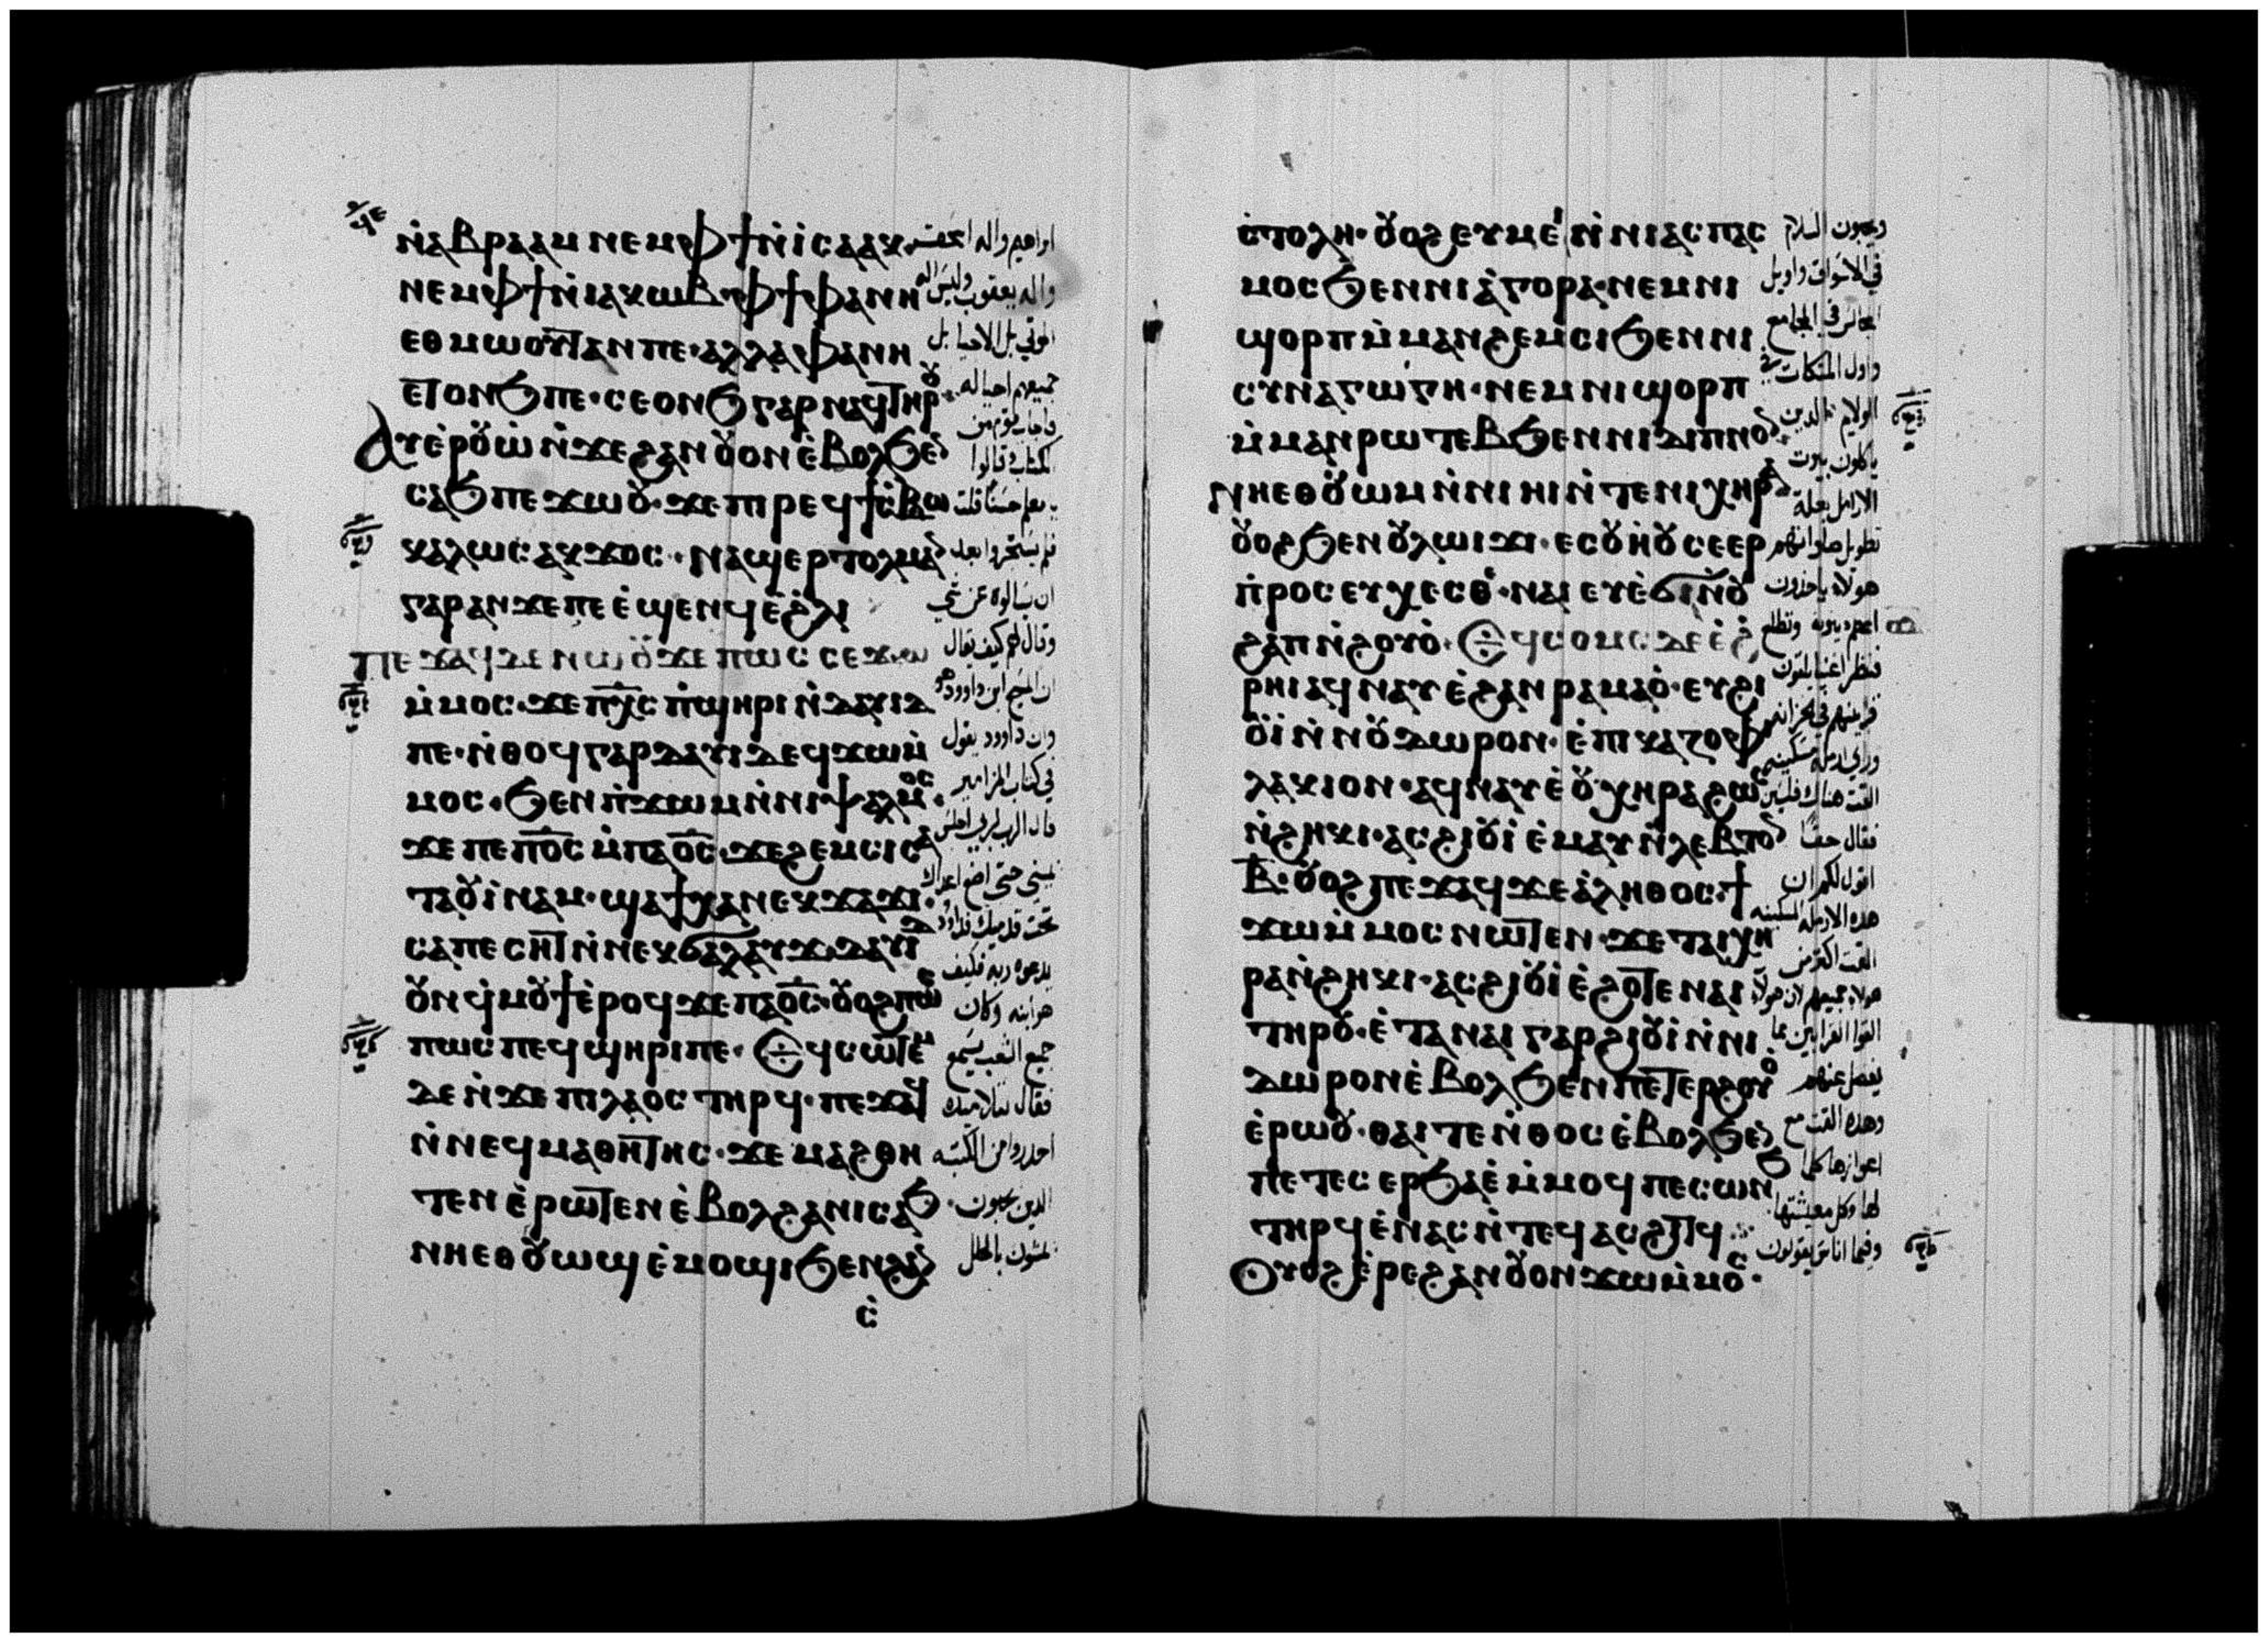 ⲛ̀ⲁⲃⲣⲁⲁⲙ ⲛⲉⲙⲫϯⲛ̀ⲓ̀ⲥⲁⲁⲕ·
ⲛⲉⲙⲫϯⲛ̀ⲓⲁⲕⲱⲃ·ⲫϯⲫⲁⲛⲏ
ⲉⲑⲙⲱⲟⲩⲧⲁⲛⲡⲉ·ⲁⲗⲗⲁⲫⲁⲛⲏ
ⲉⲧⲟⲛϧⲡⲉ·ⲥⲉⲟⲛϧⲅⲁⲣⲛⲁϥⲧⲏⲣⲟⲩ
ⲁⲩⲉ̀ⲣⲟⲩⲱ̀ ⲛ̀ϫⲉϩⲁⲛⲟⲩⲟⲛⲉ̀ⲃⲟⲗϧⲉⲛ
ⲥⲁϧⲡⲉϫⲱⲟⲩ·ϫⲉⲡⲓⲣⲉϥϯⲥ̀ⲃⲱ
ⲕⲁⲗⲱⲥⲁⲕϫⲟⲥ·ⲛⲁϣⲉⲣⲧⲟⲗⲙⲁⲛ
ⲅⲁⲣⲁⲛϫⲉⲡⲉⲉ̀ϣⲉⲛϥⲉ̀ϩ̀ⲗⲓ
ⲡⲉϫⲁϥⲇⲉⲛⲱⲟⲩϫⲉⲡⲱⲥⲥⲉϫⲱ
ⲙ̀ⲙⲟⲥ·ϫⲉⲡⲭ̅ⲥ̅ⲡ̀ϣⲏⲣⲓⲛ̀ⲇⲁⲩⲓⲇ
ⲡⲉ·ⲛ̀ⲑⲟϥⲅⲁⲣⲇⲁⲩⲓⲇⲉϥϫⲱⲙ̀
ⲙⲟⲥ·ϧⲉⲛⲡ̀ϫⲱⲙⲛ̀ⲛⲓⲯⲁⲗⲙⲟⲥ·
ϫⲉⲡⲉⲡⲟ̅ⲥ̅ⲙ̀ⲡⲁⲟ̅ⲥ̅·ϫⲉϩⲉⲙⲥⲓⲥⲁ
ⲧⲁⲟⲩⲓ̀ⲛⲁⲙ·ϣⲁϯⲭⲁⲛⲉⲕϫⲁϫⲓ·
ⲥⲁⲡⲉⲥⲏⲧⲛ̀ⲛⲉⲕϭⲁⲗⲁⲩϫ·ⲇⲁⲩⲓⲇ
ⲟⲩⲛϥ̀ⲙⲟⲩϯⲉ̀ⲣⲟϥϫⲉⲡⲁⲟ̅ⲥ̅·ⲟⲩⲟϩⲡⲱⲥ
ⲡⲱⲥⲡⲉϥϣⲏⲣⲓⲡⲉ·ⲉϥⲥⲱⲧⲉⲙ
ⲇⲉⲛ̀ϫⲉⲡⲓⲗⲁⲟⲥⲧⲏⲣϥ·ⲡⲉϫⲁϥ
ⲛ̀ⲛⲉϥⲙⲁⲑⲏⲧⲏⲥ·ϫⲉⲙⲁϩⲑⲏ
ⲧⲉⲛⲉ̀ⲣⲱⲧⲉⲛⲉ̀ⲃⲟⲗϩⲁⲛⲓⲥⲁϧ·
ⲛⲏⲉⲑⲟⲩⲱϣⲉ̀ⲙⲟϣⲓϧⲉⲛϩⲁⲛ
ⲥ̀
ابراهيم واله اسحق
واله يعقوب وليس اله
الموتى بل الاحيا بل
جميعهم احيا له
فاجاب قوم من
الكتاب وقالوا
يا معلم حسنا قلت
فلم يستجروا بعد
ان يسالوه عن شي
وقال لهم كيف يقال
ان المسيح ابن داوود هو
وان داوود يقول
في كتاب المزامير
قال الرب لربي اجلس
عن يميني حتى اضع اعداك
تحت قدميك فداود
يدعوه ربه فكيف
هو ابنه وكان
جميع الشعب يسمع
فقال لتلاميذه
احذروا من الكتبه
الذين يحبون
يمشون بالحلل
ⲥ̀ⲧⲟⲗⲏ·ⲟⲩⲟϩⲉⲩⲙⲉⲓⲛ̀ⲛⲓⲁⲥⲡⲁⲥ
ⲙⲟⲥϧⲉⲛⲛⲓⲁ̀ⲅⲟⲣⲁ·ⲛⲉⲙⲛⲓ
ϣⲟⲣⲡⲙ̀ⲙⲁⲛϩⲉⲙⲥⲓϧⲉⲛⲛⲓ
ⲥⲩⲛⲁⲅⲱⲅⲏ·ⲛⲉⲙⲛⲓϣⲟⲣⲡ
ⲙ̀ⲙⲁⲛⲣⲱⲧⲉⲃϧⲉⲛⲛⲓⲇⲓⲡⲛⲟⲛ
ⲛⲏⲉⲑⲟⲩⲱⲙⲛ̀ⲛⲓⲏⲓⲛ̀ⲧⲉⲛⲓⲭⲏⲣⲁ
ⲟⲩⲟϩϧⲉⲛⲟⲩⲗⲱⲓϫⲓ·ⲉⲥⲟⲩⲏ̀ⲟⲩⲥⲉⲉⲣ
ⲡ̀ⲣⲟⲥⲉⲩⲭⲉⲥⲑⲉ·ⲛⲁⲓⲉⲩⲉ̀ϭⲓⲛⲟⲩ
ϩⲁⲡⲛ̀ϩⲟⲩⲟ̀·ⲉϥⲥⲟⲙⲥⲇⲉⲉ̀ϩ
ⲣⲏⲓⲁϥⲛⲁⲩⲉ̀ϩⲁⲛⲣⲁⲙⲁⲟ̀·ⲉⲩϩⲓ
ⲟⲩⲓ̀ⲛ̀ⲛⲟⲩⲇⲱⲣⲟⲛ·ⲉ̀ⲡⲓⲕⲁⲍⲟⲫ
ⲗⲁⲕⲓⲟⲛ·ⲁϥⲛⲁⲩⲉ̀ⲟⲩⲭⲏⲣⲁϩⲱⲥ
ⲛ̀ϩⲏⲕⲓ·ⲁⲥϩⲓⲟⲩⲓ̀ⲉ̀ⲙⲁⲩⲛ̀ⲗⲉⲃⲧⲟⲛ
ⲃ̅·ⲟⲩⲟϩⲡⲉϫⲁϥϫⲉⲁ̀ⲗⲏⲑⲟⲥ·ϯ
ϫⲱⲙ̀ⲙⲟⲥⲛⲱⲧⲉⲛ·ϫⲉⲧⲁⲓⲭⲏ
ⲣⲁⲛ̀ϩⲏⲕⲓ·ⲁⲥϩⲓⲟⲩⲓ̀ⲉ̀ϩⲟⲧⲉⲛⲁⲓ
ⲧⲏⲣⲟⲩ·ⲉ̀ⲧⲁⲛⲁⲓⲅⲁⲣϩⲓⲟⲩⲓ̀ⲛ̀ⲛⲓ
ⲇⲱⲣⲟⲛⲉ̀ⲃⲟⲗϧⲉⲛⲡⲉⲧⲉⲣϩⲟⲩⲟ
ⲉ̀ⲣⲱⲟⲩ·ⲑⲁⲓⲧⲉⲛ̀ⲑⲟⲥⲉ̀ⲃⲟⲗϧⲉⲛ
ⲡⲉⲧⲉⲥⲉⲣϧⲁⲉ̀ⲙ̀ⲙⲟϥⲡⲉⲥⲱⲛϧ
ⲧⲏⲣϥⲉ̀ⲛⲁⲥⲛ̀ⲧⲉϥⲁⲥϩⲓⲧϥ
ⲟⲩⲟϩⲉ̀ⲣⲉϩⲁⲛⲟⲩⲟⲛϫⲱⲙ̀ⲙⲟⲥ·
ويحبون السلام
في الاسواق واويل
المجالس في المجامع
واول المتكات في
الولايم الذين
ياكلون بيوت
الارامل بعلة
تطويل صلواتهم
هولاء ياخذون
اعظم دينونه وتطلع
فنظر اغنيا يلقون
قرابينهم في الخزانه
وراى ارمله مسكينه
القت هناك فلسين
فقال حقا
اقول لكم ان
هذه الارمله المسكينه
القت اكثر من
هولاء جميعهم لان هولاء
القوا القرابين مما
يفضل عنهم
وهذه القت مع
اعوازها كلما
لها وكل معيشتها
وفيما اناس يقولون